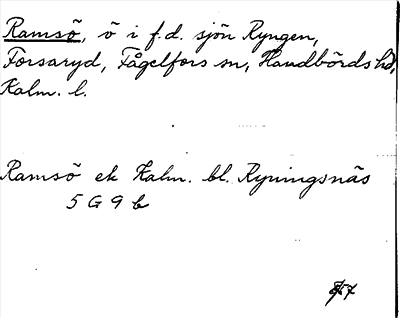 Ramsö, ö i f.d. sjön Ryngen,
Forsaryd, Fågelfors sn, Handbörds hd,
Kalm. l.
Ramsö ek Kalm. bl. Ryningsnäs
5 G 9 b